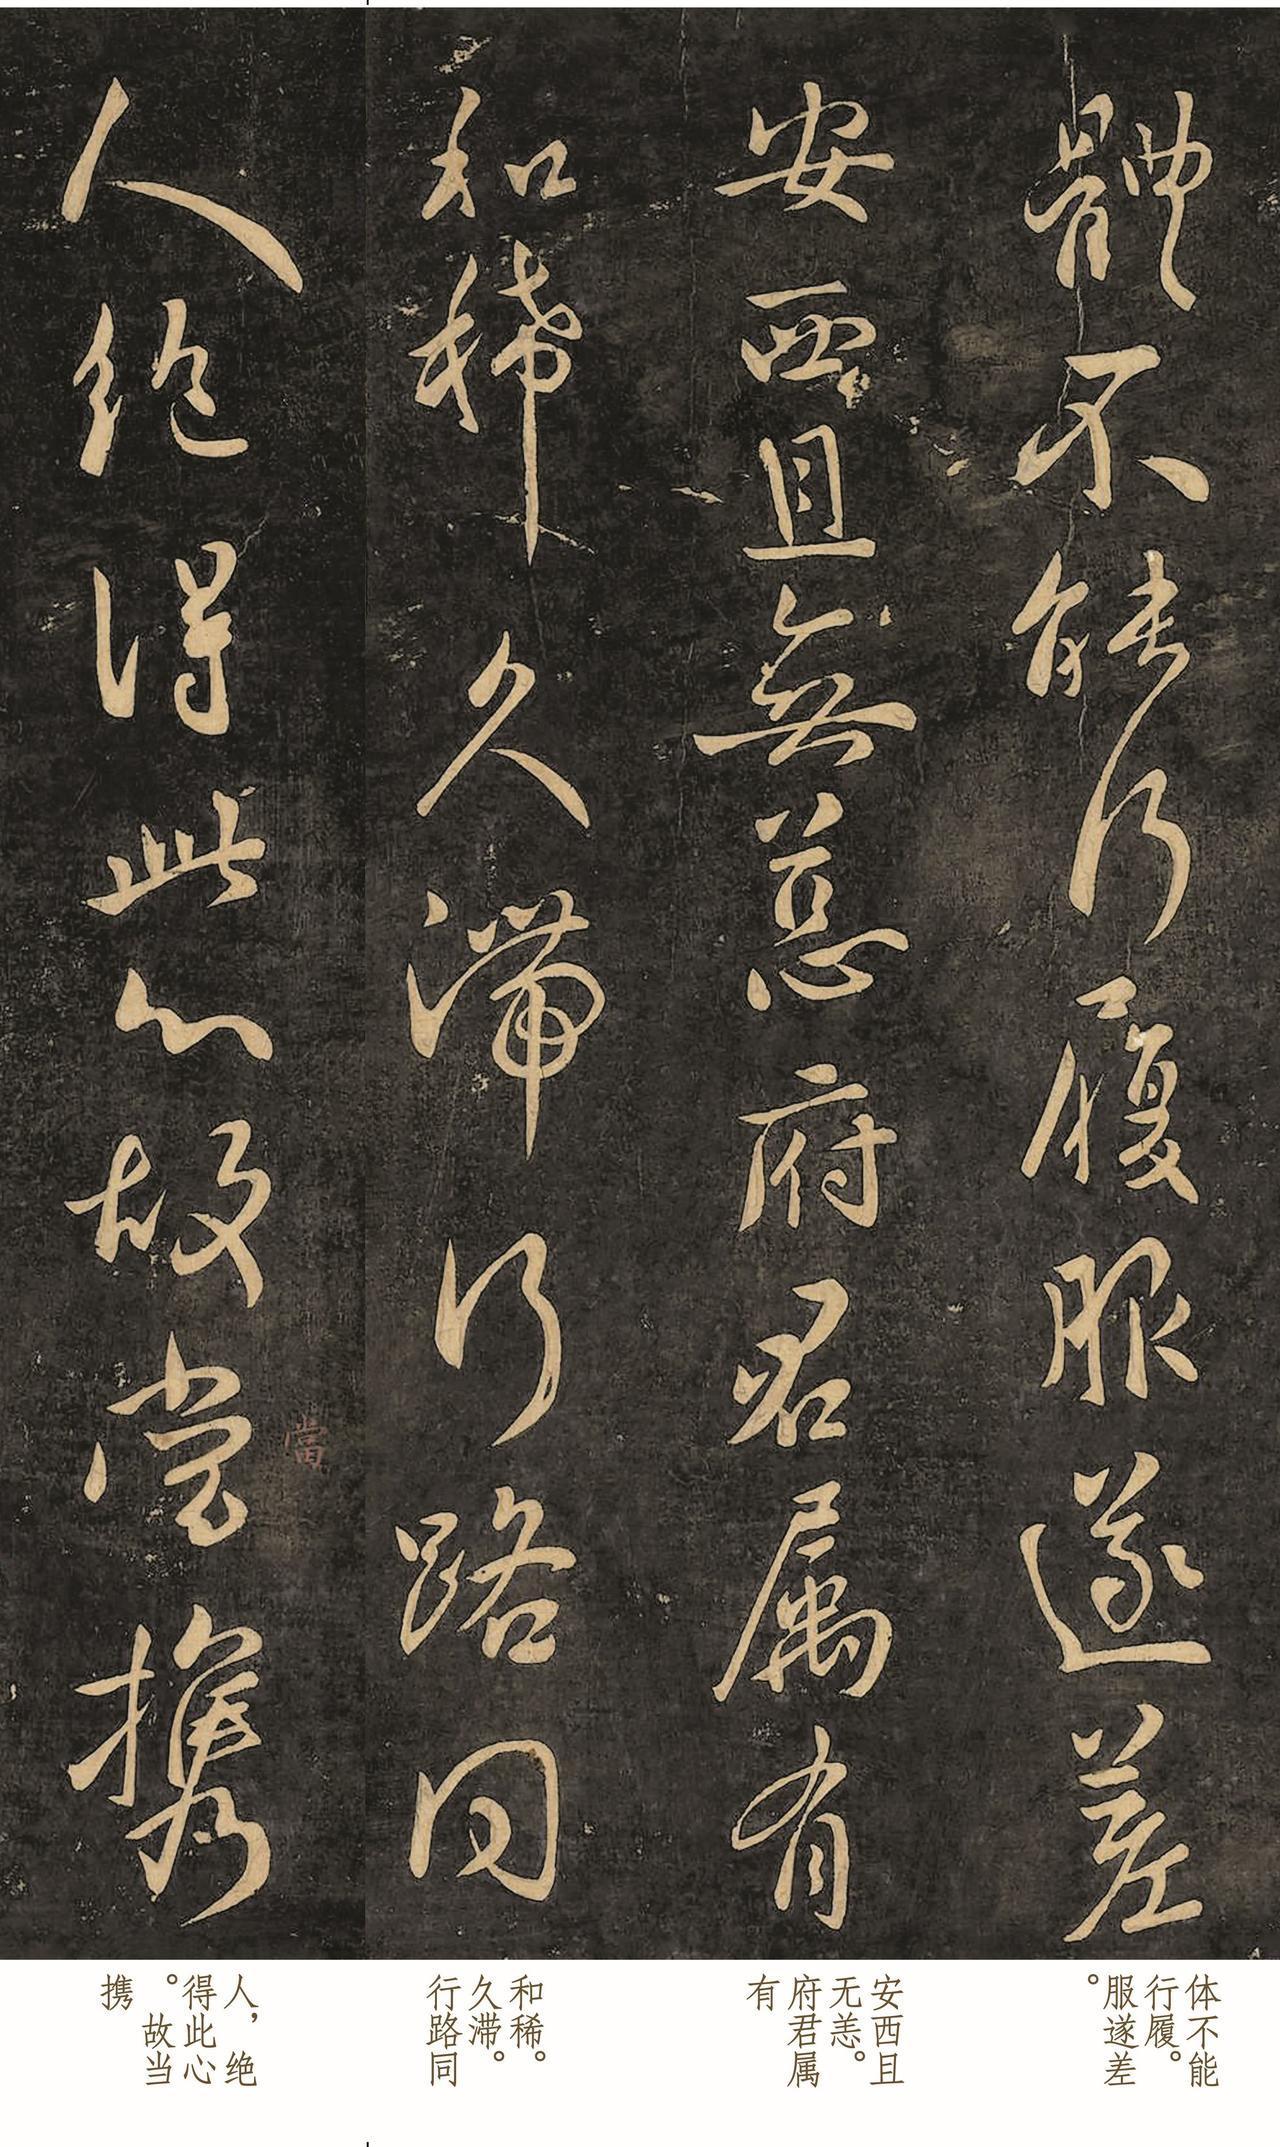 體不能行履服遂差
安西且無恙府君属有
和稀久滯行路同
人絶得此心故當攜
當
体不能
行履。
服遂差
。
安西且
无恙。
府君属
有
和稀。
久滞。
行路同
人，绝
得此心
。故当
携